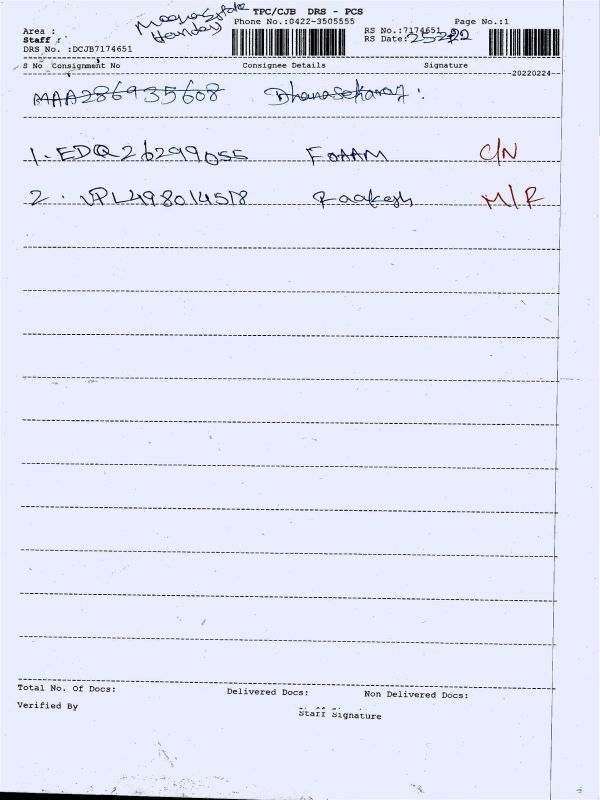 TPC/CJB DRS - PCS
Phone No.:0422-3505555 Page No.:1
Area :
RS No.:7174651
Staff :
RS Date:
DRS No. :DCJB7174651
S No Consignment No Consignee Details Signature
20220224
MAA286935608 Dhanasekaran
1. EDQ26299055 FOAAM C/N
2. VPL498014518 Raakesh M/R
Total No. Of Docs: Delivered Docs: Non Delivered Docs:
Verified By Staff Signature